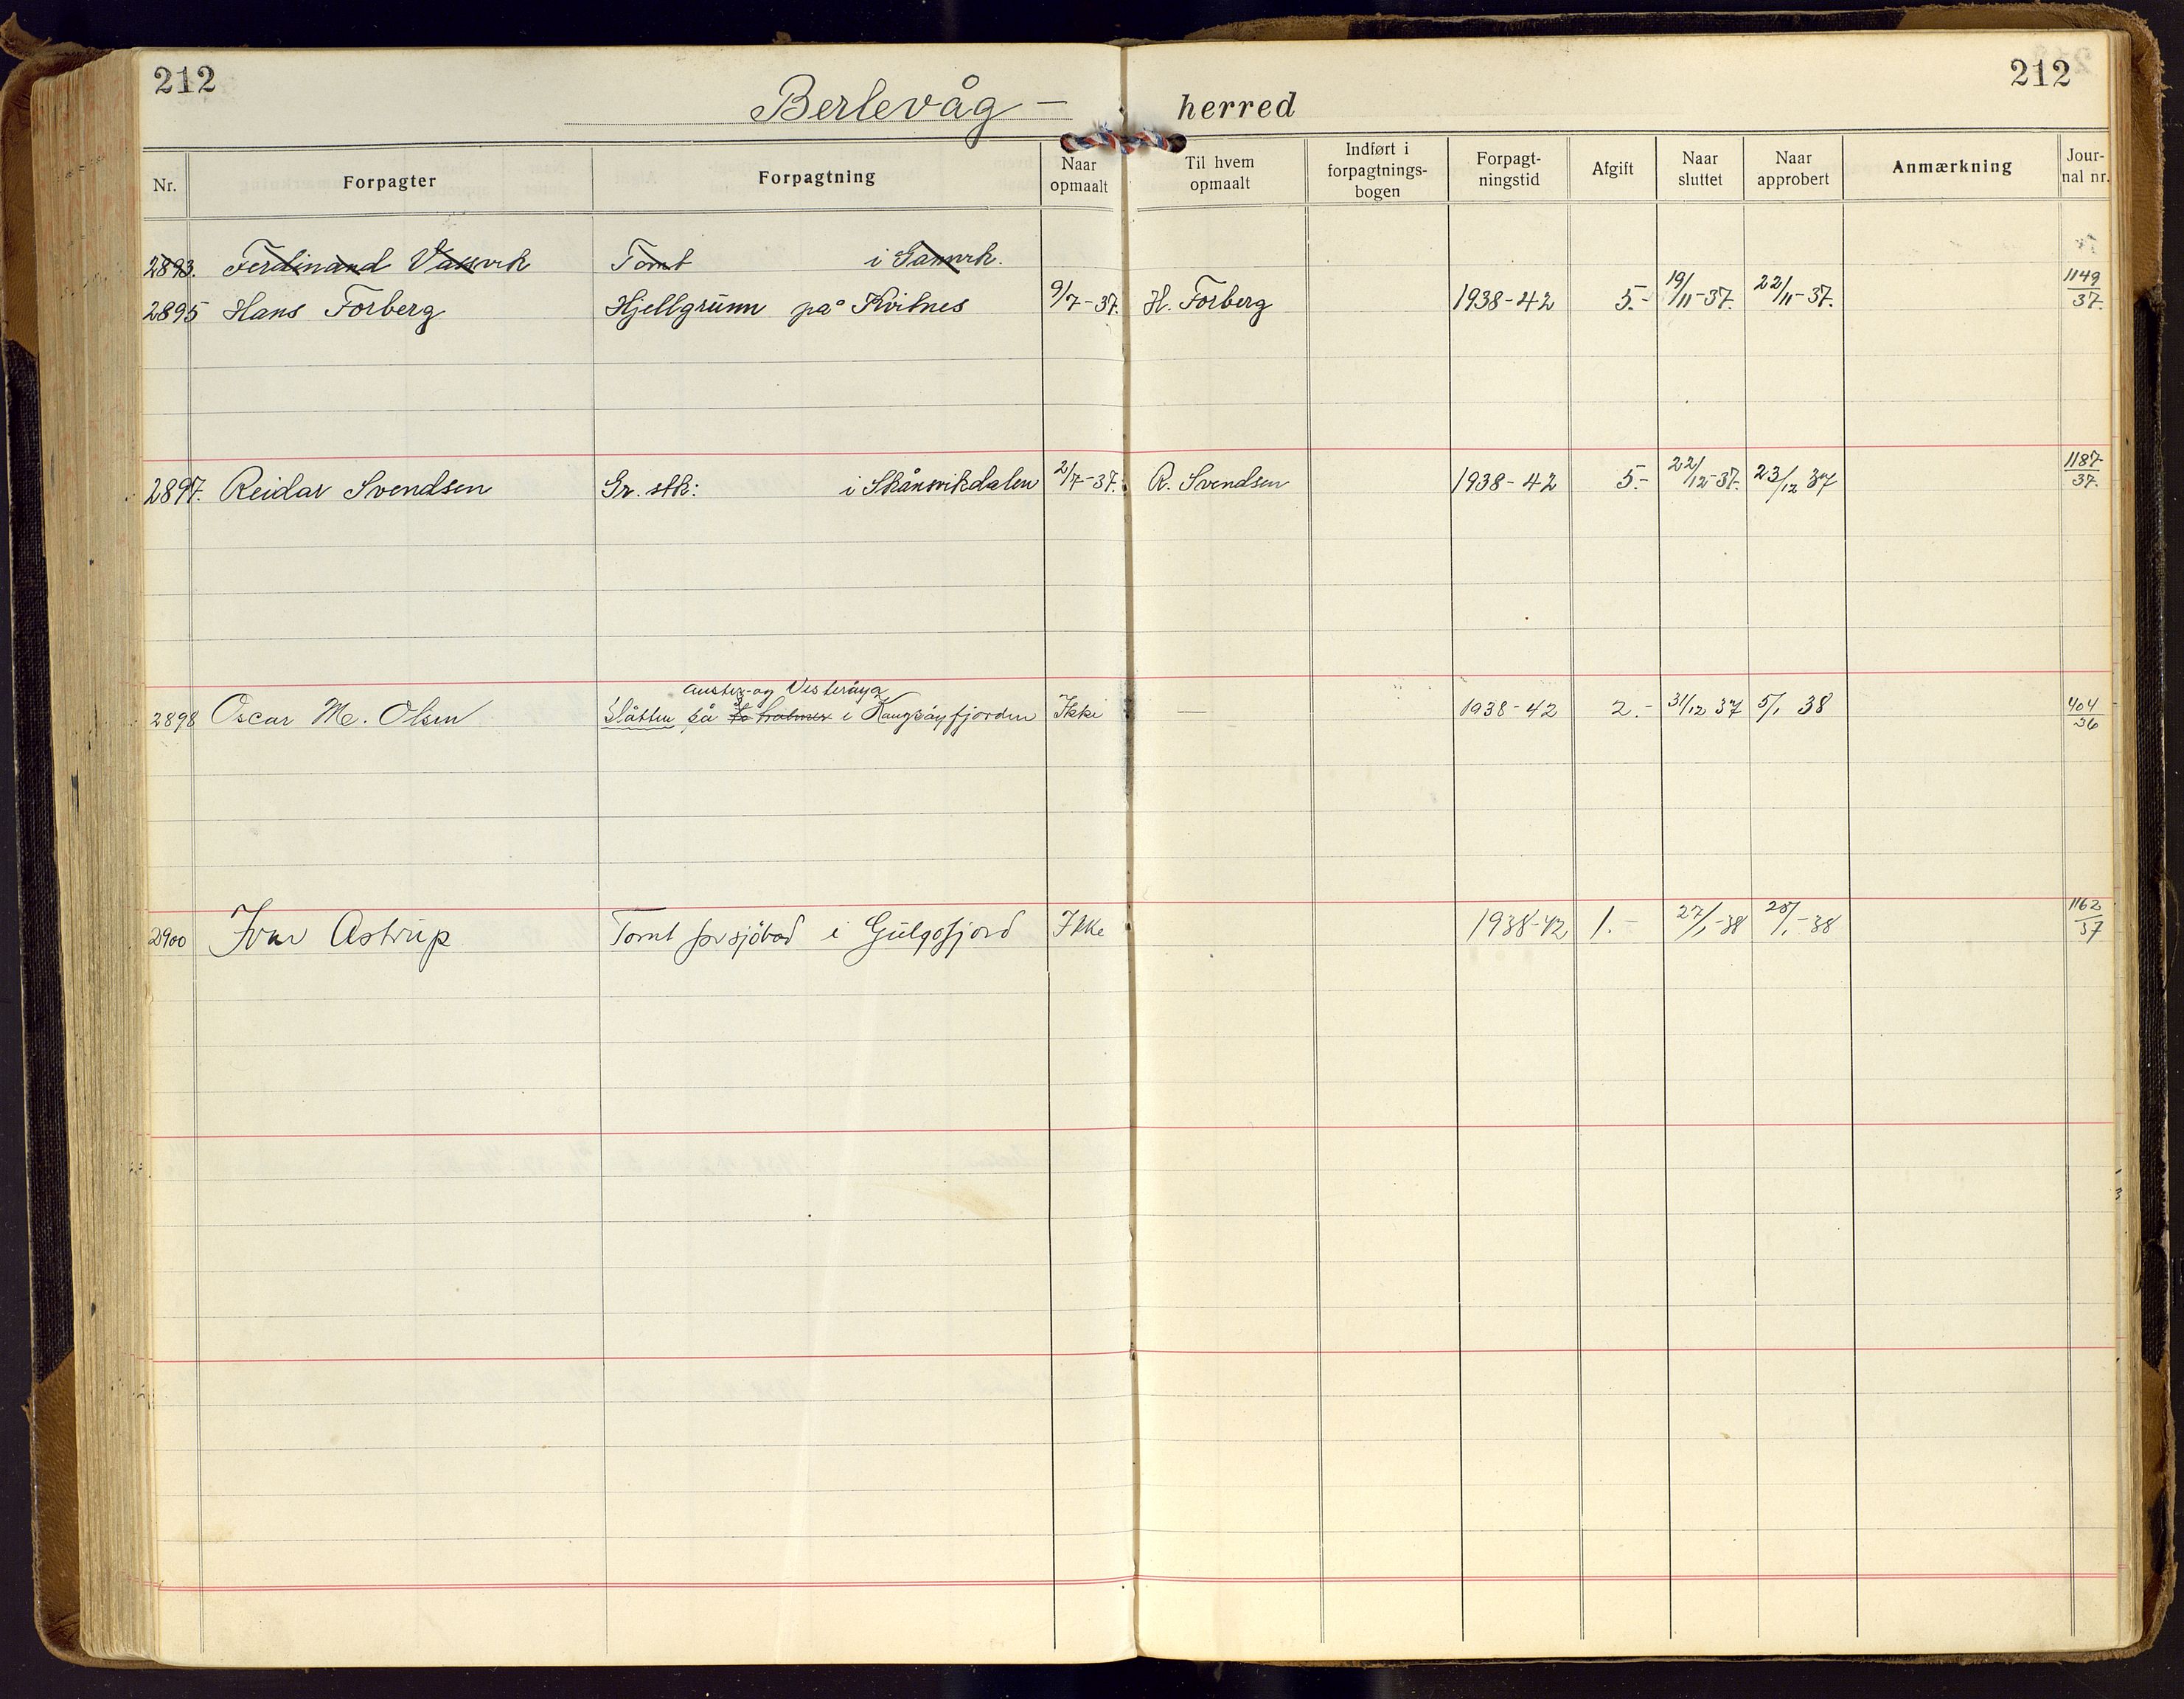 212 212
Berlevåg - herred
Nr. Forpagter Forpagtning Naar opmaalt Til hvem opmaalt Indført i forpagtnings-bogen Forpagt-ningstid Afgift Naar sluttet Naar approbert Anmærkning Jour-nal nr.
2893. Ferdinand Vassvik Tomt i Gamvik.
2895 Hans Forberg Hjellgrunn på Kvitnes 9/7-37. H. Forberg 1938-42 5.- 19/11-37. 22/11-37. 1149/37.
2897. Reidar Svendsen Gr. stk: i Skånsvikdalen 2/7-37. R. Svendsen 1938-42 5.- 22/12-37. 23/12 37 1187/37.
auster- og Vesterøya
2898 Oscar M. Olsen Slåtten på to holmer i Kongsøyfjorden Ikke — 1938-42 2.- 31/12 37 5/1 38 404/36
2900 Ivar Astrup Tomt for sjøbod i Gulgofjord Ikke 1938-42 1.- 27/1-38 28/1-38 1162/37